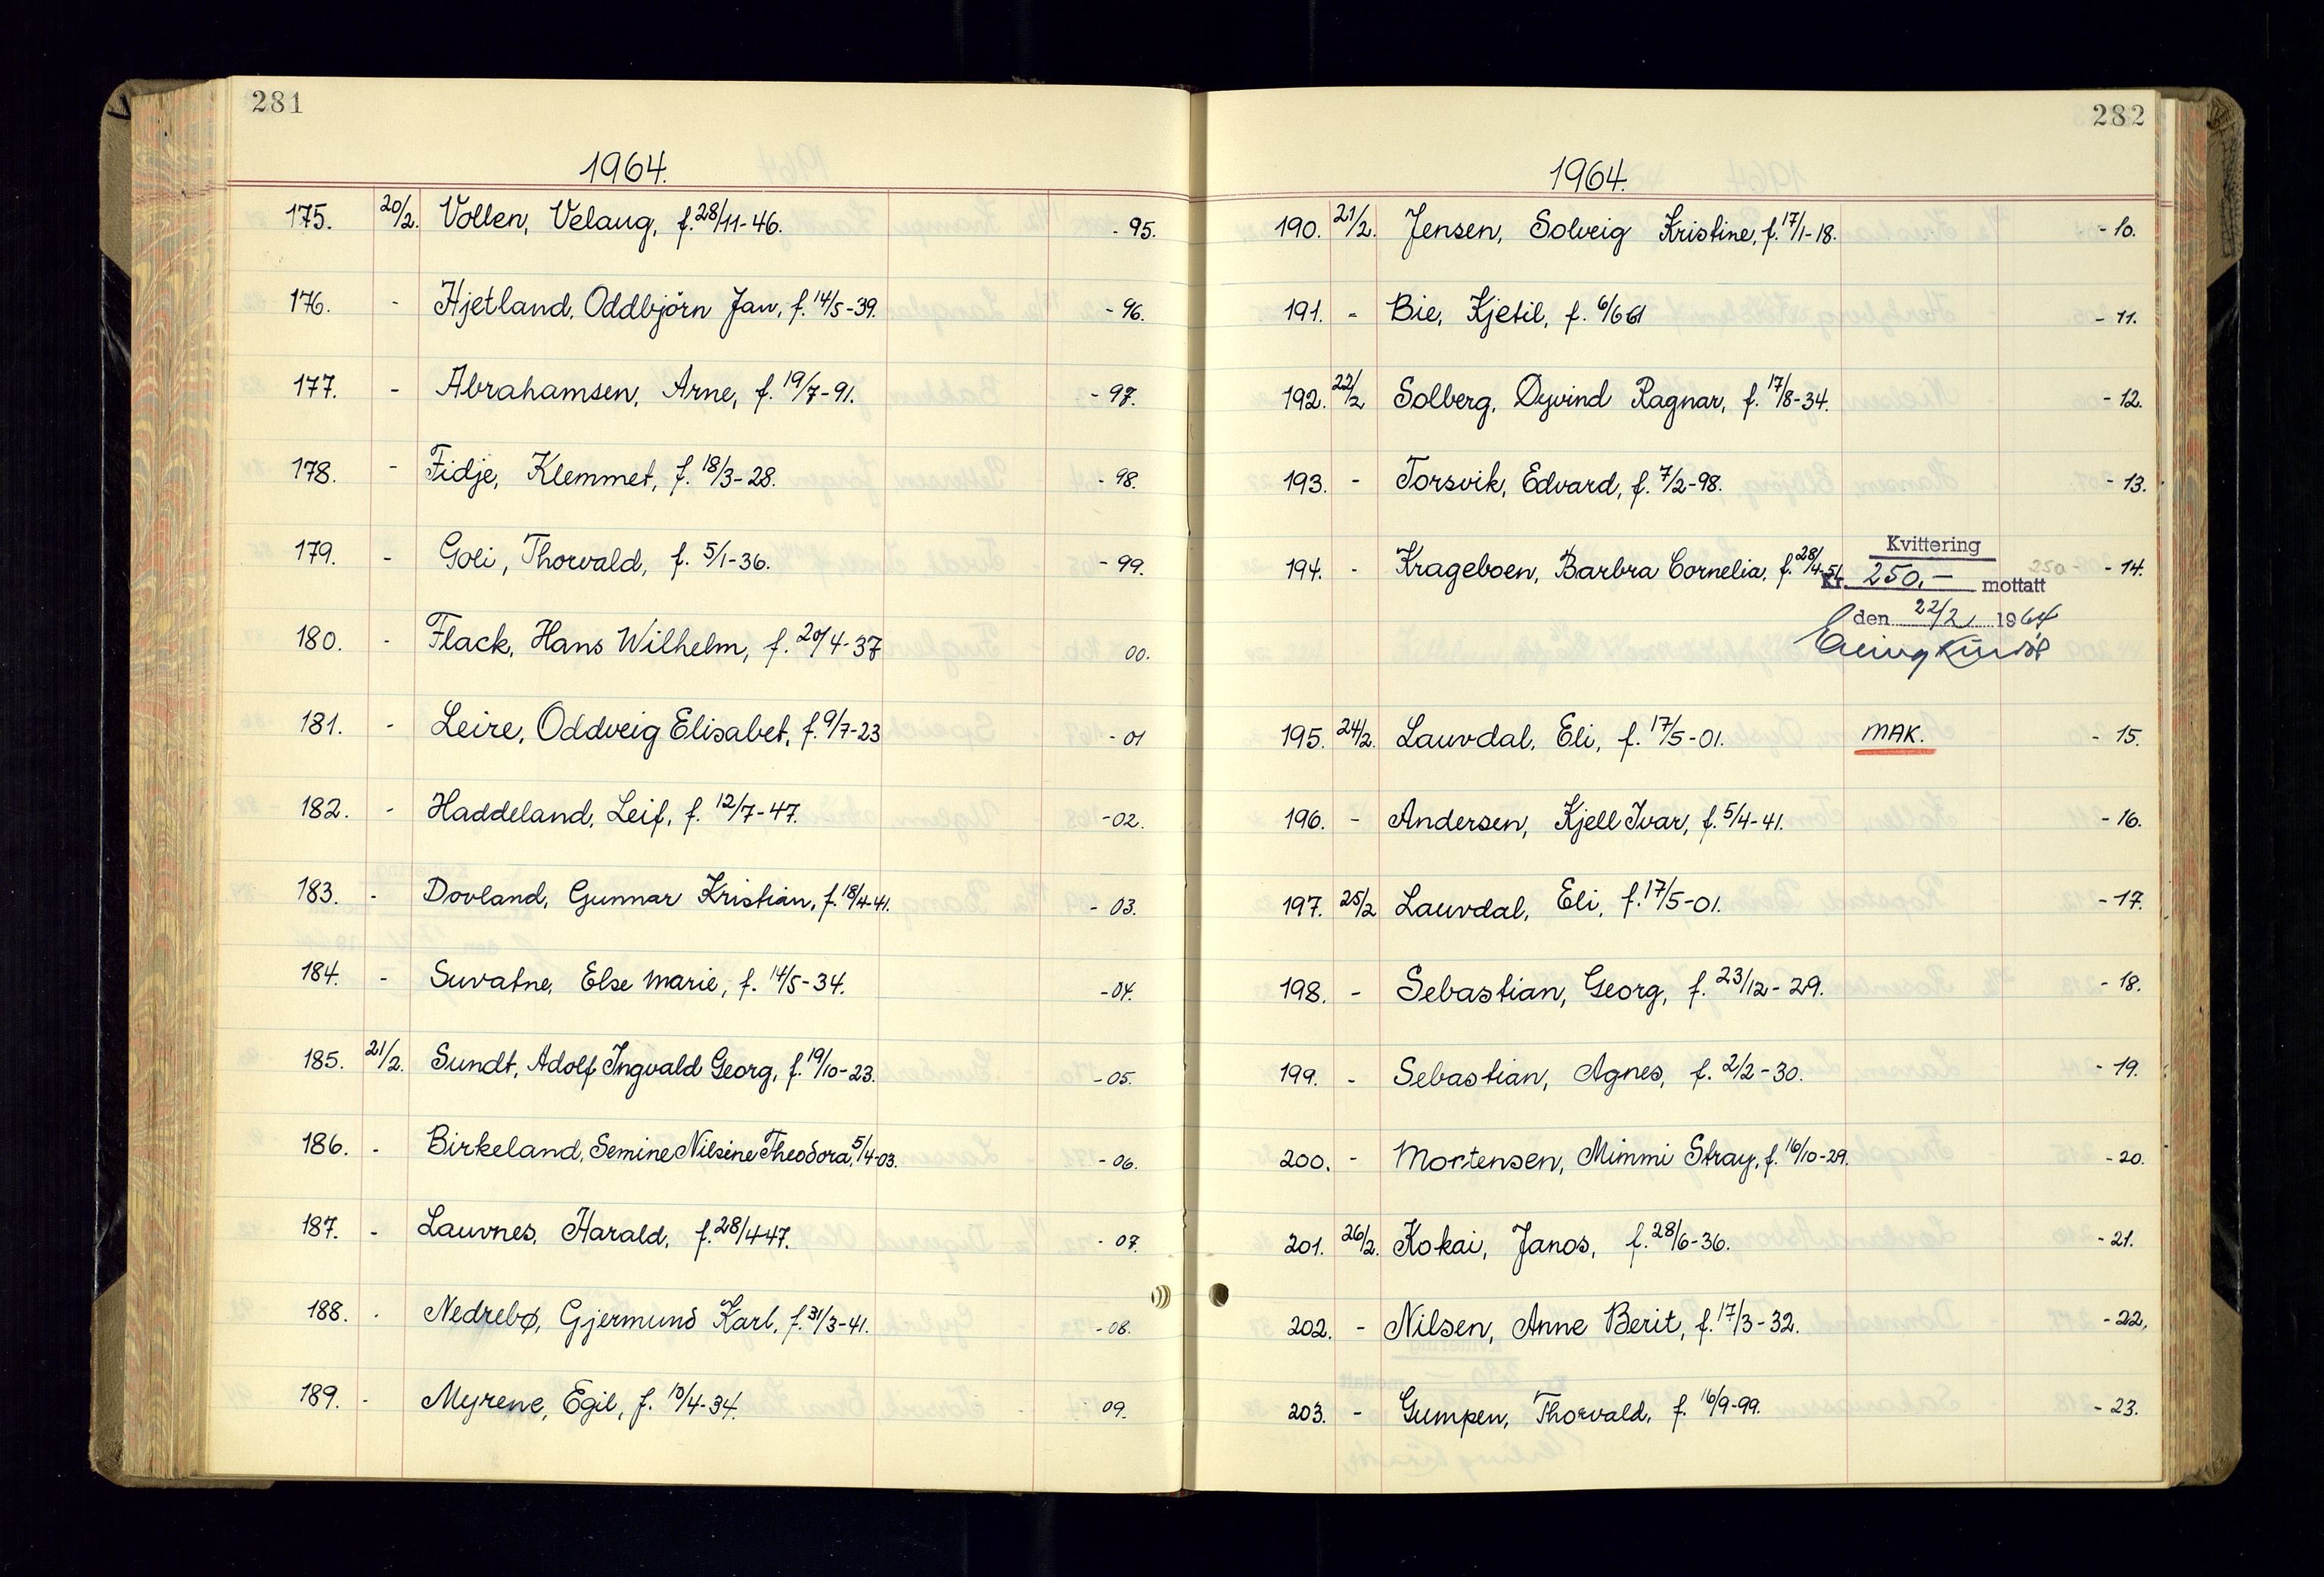 281
1964.
175. 20/2. Vollen, Velaug, f. 28/11-46. - 95.
176. - Hjetland, Oddbjörn Jan, f. 14/5-39. - 96.
177. - Abrahamsen, Arne, f. 19/7-91. - 97.
178. - Fidje, Klemmet, f. 18/3-28. - 98.
179. - Goli, Thorvald, f. 5/1-36. - 99.
180. - Flack, Hans Wilhelm, f. 20/4-37 00.
181. - Leire, Oddveig Elisabet, f. 9/7-23 - 01
182. - Haddeland, Leif, f. 12/7-47. - 02.
183. - Dovland, Gunnar Kristian, f. 18/4-41. - 03.
184. - Suvatne, Else Marie, f. 14/5-34. - 04.
185. 21/2. Sundt, Adolf Ingvald Georg, f. 19/10-23. - 05.
186. - Birkeland, Semine Nilsine Theodora, 5/4-03. - 06.
187. - Lauvnes, Harald, f. 28/4-47. - 07.
188. - Nedrebø, Gjermund Karl, f. 31/3-41. - 08.
189. - Myrene, Egil, f. 10/4-34. 09.
282
1964.
190. 21/2. Jensen, Solveig Kristine, f. 17/1-18. - 10.
191. - Bie, Kjetil, f. 6/6 61 - 11.
192. 22/2 Solberg, Øyvind Ragnar, f. 17/8-34. - 12.
193. - Torsvik, Edvard, f. 7/2-98. - 13.
Kvittering
194. - Krageboen, Barbra Cornelia, f. 28/4-51 250 - 14.
Kr. 250,- mottatt
den 22/2 1964
195. 24/2. Lauvdal, Eli, f. 17/5-01. MAK. - 15.
196. - Andersen, Kjell Ivar, f. 5/4-41. - 16.
197. 25/2 Lauvdal, Eli, f. 17/5-01. - 17.
198. - Sebastian, Georg, f. 23/12-29. - 18.
199. - Sebastian, Agnes, f. 2/2-30. - 19.
200. - Mortensen, Mimmi Stray, f. 16/10-29. - 20.
201. 26/2. Kokai, Janos, f. 28/6-36. - 21.
202. - Nilsen, Anne Berit, f. 17/3-32. - 22.
203. - Gumpen, Thorvald, f. 16/9-99. - 23.